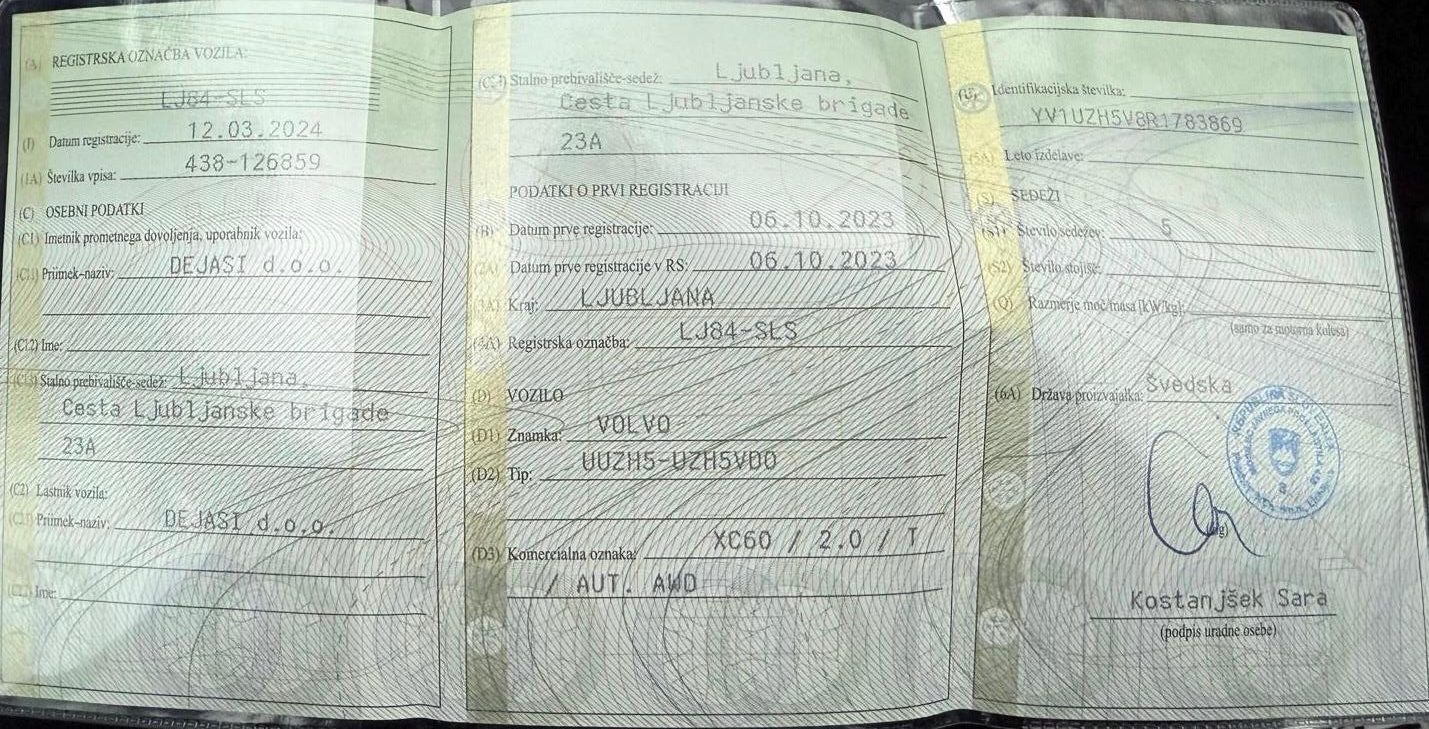 (A) REGISTRSKA OZNAČBA VOZILA:
LJ84-SLS
(I) Datum registracije: 12.03.2024
(1A) Številka vpisa: 438-126859
(C) OSEBNI PODATKI
(C1) Imetnik prometnega dovoljenja, uporabnik vozila:
(C1.1) Priimek-naziv: DEJASI d.o.o.
(C1.2) Ime:
(C1.3) Stalno prebivališče-sedež: Ljubljana,
Cesta Ljubljanske brigade
23A
(C2) Lastnik vozila:
(C2.1) Priimek-naziv: DEJASI d.o.o.
Ime:
Stalno prebivališče-sedež: Ljubljana,
Cesta Ljubljanske brigade
23A
PODATKI O PRVI REGISTRACIJI
(B) Datum prve registracije: 06.10.2023
(2A) Datum prve registracije v RS: 06.10.2023
(3A) Kraj: LJUBLJANA
(4A) Registrska označba: LJ84-SLS
(D) VOZILO
(D1) Znamka: VOLVO
(D2) Tip: UUZH5-UZH5VD0
(D3) Komercialna oznaka: XC60 / 2.0 / T
/ AUT. AWD
(E) Identifikacijska številka:
YV1UZH5V8R1783869
(5A) Leto izdelave:
(S) SEDEŽI
(S1) Število sedežev: 5
(S2) Število stojišč:
(Q) Razmerje moč/masa [kW/kg]:
(samo za motorna kolesa)
(6A) Država proizvajalka: Švedska
Kostanjšek Sara
(podpis uradne osebe)